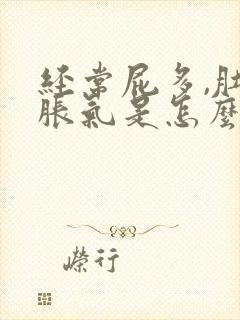 经常屁多,肚
脹氣是怎麼
嶸行